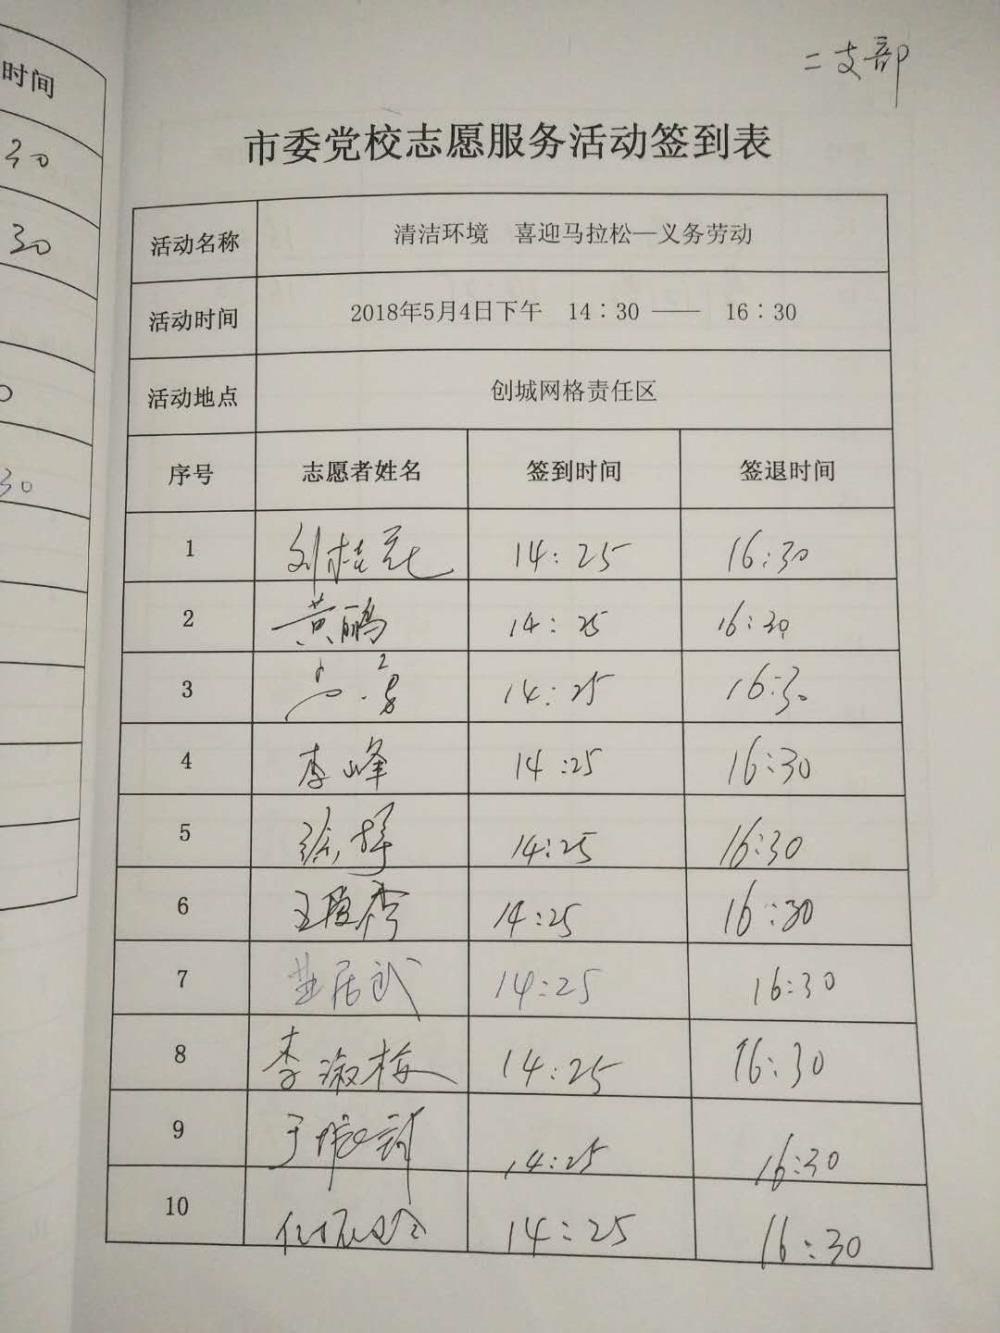 时间
30
30
30
二支部
市委党校志愿服务活动签到表
活动名称 清洁环境 喜迎马拉松—义务劳动
活动时间 2018年5月4日下午 14：30 —— 16：30
活动地点 创城网格责任区
序号 志愿者姓名 签到时间 签退时间
1 刘桂元 14：25 16：30
2 黄鹂 14：25 16：30
3 14：25 16：30
4 李峰 14：25 16：30
5 14：25 16：30
6 14：25 16：30
7 14：25 16：30
8 李淑梅 14：25 16：30
9 14：25 16：30
10 14：25 16：30